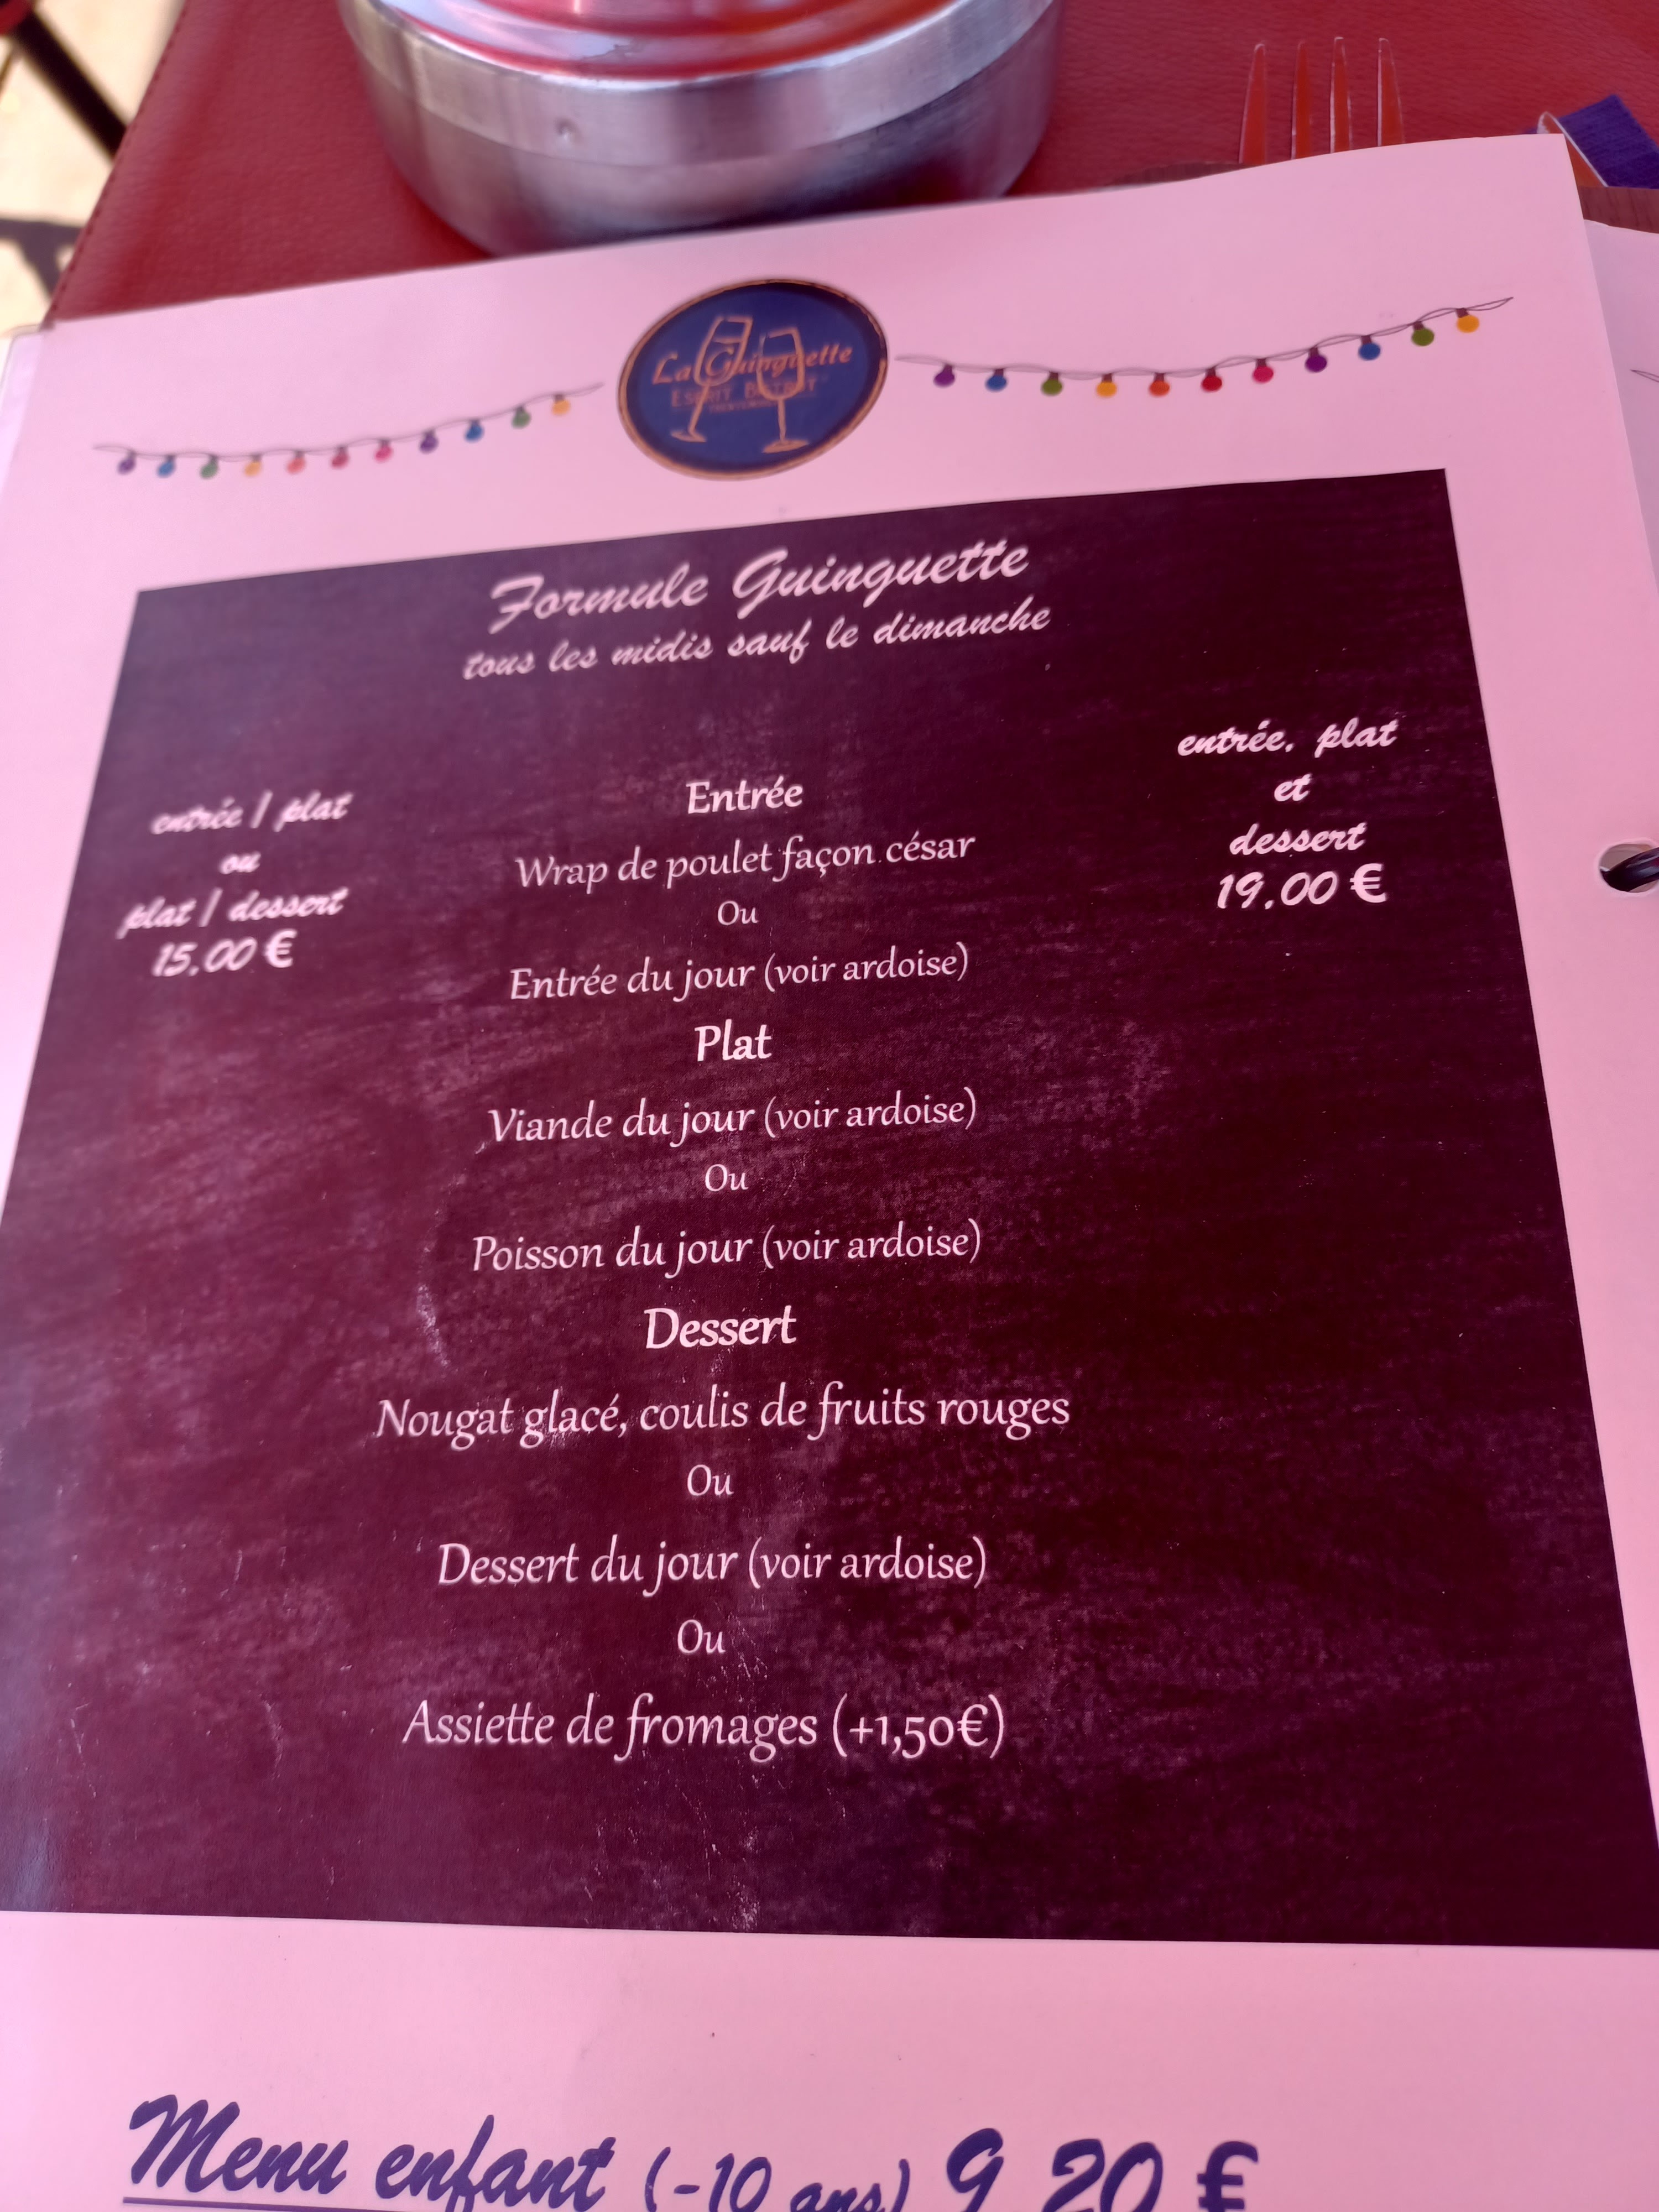 La Guinguette
ESPRIT BISTROT
Formule Guinguette
tous les midis sauf le dimanche
entrée / plat
ou
plat / dessert
15.00 €
entrée, plat
et
dessert
19.00 €
Entrée
Wrap de poulet façon césar
Ou
Entrée du jour (voir ardoise)
Plat
Viande du jour (voir ardoise)
Ou
Poisson du jour (voir ardoise)
Dessert
Nougat glacé, coulis de fruits rouges
Ou
Dessert du jour (voir ardoise)
Ou
Assiette de fromages (+1,50€)
Menu enfant (-10 ans) 9.20 €